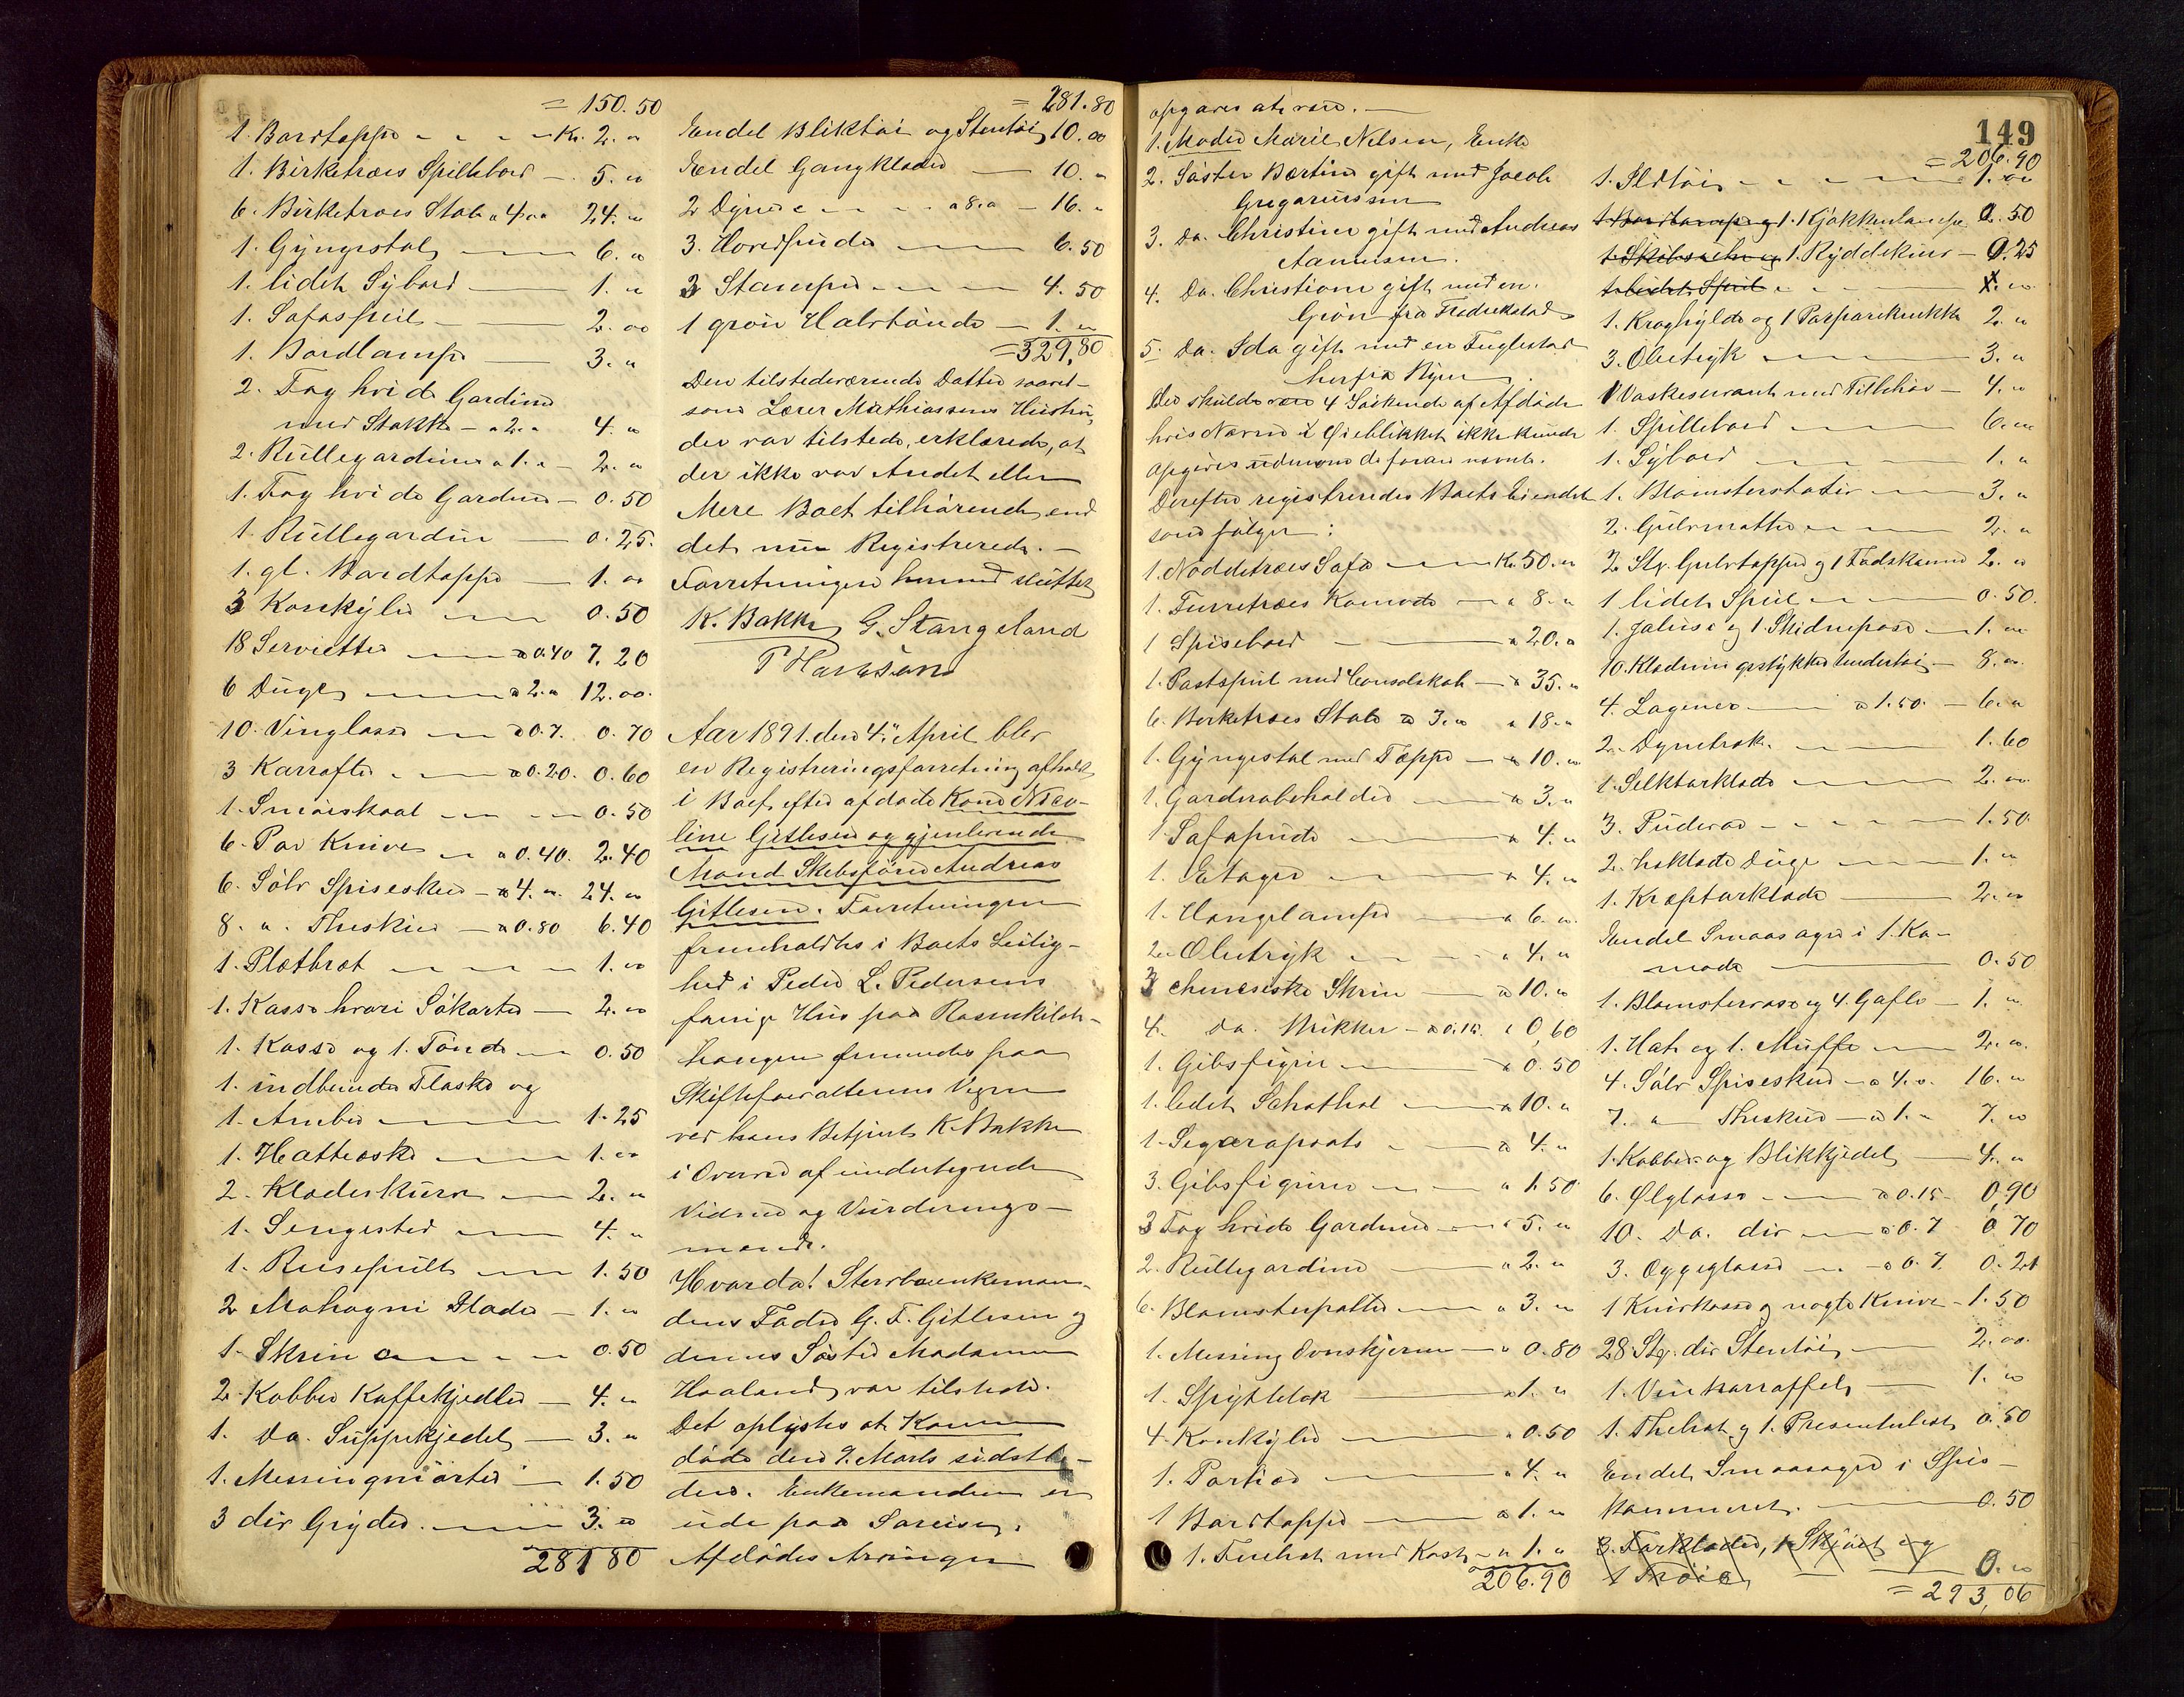 = 150.50
1. Bordteppe - - - - Kr. 2. "
1. Birketræes Spillebord - 5. "
6. Birketræes Stole a 4.00 24. "
1. Gyngestol - 6. "
1. lidet Sybord - 1. "
1. Sofaspeil - 2. 00
1. Bordlampe - 3. "
2. Fag hvide Gardiner
med Stokke - a 2. " 4. "
2. Rullegardiner a 1. " - 2. "
1. Fag hvide Gardiner - 0.50
1. Rullegardin - 0.25.
1. gl. Bordteppe - 1. 00
3 Konkylier - 0.50
18 Servietter - a 0.40 7.20
6 Duge - a 2. " 12.00.
10. Vinglasse - a 0.7. 0.70
3 Karrafler - a 0.20. 0.60
1. Smørskaal - 0.50
6. Par Knive - a 0.40. 2.40
6. Sølv Spiseskeer - a 4. " 24. "
8. " Theskeer - a 0.80 6.40
1. Pletbret - 1. "
1. Kasse hvori Søkarter - 2. "
1. Kasse og 1. Tønde - 0.50
1. indbunden Flaske og
1. Amber - 1.25
1. Hatteæske - 1. "
2. Kladeskurve - 2. "
1. Sengested - 4. "
1. Reisepult - 1.50
2 Mahogni Plader - 1. "
1. Skrin - 0.50
2 Kobber Kaffekjedler - 4. "
1. Do. Suppekjedel - 3. "
1. Messingmorter - 1.50
3 div Gryder. - 3. "
281 80
= 281.80
Endel Bliktøi og Stentøi 10.00
Endel Gangklæder - 10. "
2 Dyner - a 8. " - 16. "
3. Hovedpuder - 6.50
3 Stamper - 4.50
1 grøn Halvtønde - 1. "
= 329,80
Den tilstedeværende Datter saavel-
som Lærer Mathiassens Hustru,
der var tilstede, erklærede, at
der ikke var Andet eller
Mere Boet tilhørende end
det nu Registrerede. -
Forretningen hermed sluttet
K. Bakke G. Stangeland
P Hansson
Aar 1891. den 4. April blev
en Registreringsforretning afholdt
i Boet efter afdøde Kone Nico-
line Gitlesen og gjenlevende
Mand Skibsfører Andreas
Gitlesen. Forretningen
fremholdtes i Boets Leilig-
hed i Peder L. Pedersens
forrige Hus paa Rosenkilde-
haugen fremmedes paa
Skifteforvalterens Vegne
ved hans Betjent K. Bakke
i Overvær af undertegnede
Vidner og Vurderings-
mænd.
Hvorda! Stervboenkeman-
dens Fader G. F. Gitlesen og
dennes Søster Madamme
Haaland var tilstede.
Det oplystes at Konen
døde den 7. Marts sidstle-
den. Enkemanden er
ude paa Søreise.
Afdødes Arvinger
opgaves at være. -
1. Moder Marie Nelsen, Enke
2. Søster Bertine gift med Jacob
Gregoriussen
3. Do. Christine gift med Andreas
Aanensen.
4. Do. Christiane gift med en
Grøn fra Fredrikstad
5. Do. Ida gift med en Fuglestad
herfra Byen
Der skulde være 4 Søskende af Afdøde
hvis Navne i Øieblikket ikke kunde
opgives udenom de foran nævnte.
Derefter registreredes Boets Eiendele
som følger:
1. Nøddetræes Sofa - Kr 50. "
1. Furretræes Komode - " 8. "
1 Spisebord - " 20. "
1. Postspeil med Consolskab - " 35. "
6. Birketræes Stole a 3. " " 18. "
1. Gyngestol med Teppe - " 10. "
1. Garderobeholder - " 3. "
1. Sofapude - " 4. "
1. Etager - " 4. "
1. Hængelampe - " 6. "
2. Olietryk - " 4. "
3 chinesiske Skrin - " 10. "
4. Do. Brikker - a 0.15. " 0,60
1. Gibsfigur - " 0.50
1. lidet Schathol - " 10. "
1. Segaropsats - " 4. "
3. Gibsfigurer - " 1.50
3 Fag hvide Gardiner - " 5. "
2. Rullegardiner - " 2. "
6. Blomsterpotter - " 3. "
1. Messing Ovnskjerm - " 0.80
1. Spyttebak - " 1. "
4. Konkylier - " 0.50
1. Portier - " 4. "
1 Bordteppe - " 1. "
1. Feiebret med Kost - " 1. "
206.90
149
= 206.90
1. Ildtøi - 1. 00
1. Bordlampe og 1. 1 Gjøkkenlampe 0.50
1. Skibsuhr og 1. Ryddekurv - 0.25
1. lidet Speil - 1. "
1. Kroghylde og 1 Parparekrukke 2. "
3. Olietryk - 3. "
1 Vaskeservant med Tilbehør - 4. "
1. Spillebord - 6. "
1. Sybord - 1. "
1. Blomsterstativ - 3. "
2. Gulvmatter - 2. "
2 Stk. Gulvtepper og 1 Fodskammel 2. "
1 lidet Speil - 0.50.
1. Jalusi og 1. Skidnepose - 1. "
10. Klædningsstykker Undertøi - 8. "
4. Lagener - a 1.50. - 6. "
2. Dynetræk. - 1.60
1. Silketørklæde - 2. "
3. Pudevar - 1.50
2. heklede Duge - 1. "
1. Kreptørklæde - 2. "
Endel Smaasager i 1. Ko-
mode - 0.50
1. Blomstervase og 4. Gafler - 1. "
1. Hat og 1. Muffe - 2. "
4. Sølv Spiseskeer - a 4. " 16. "
7. " Theskeer - a 1. " 7. "
1. Kobber og Blikkjedel - 4. "
6. Ølglasse - a 0.15 - 0,90
10. Do. div - a 0.7 0.70
3. Eggeglasse - a 0.7 0.21
1 Knivkasse og nogle Knive - 1.50
28. Stk. div Stentøi - 2.00.
1. Vinkarraffel - 1. "
1. Thebret og 1. Presenterbret 0.50
Endel Smaasager i Spis-
kammeret. - 0.50
3. Forklæder, 1 Skjørt og
1 Trøie - 0. "
= 293,06